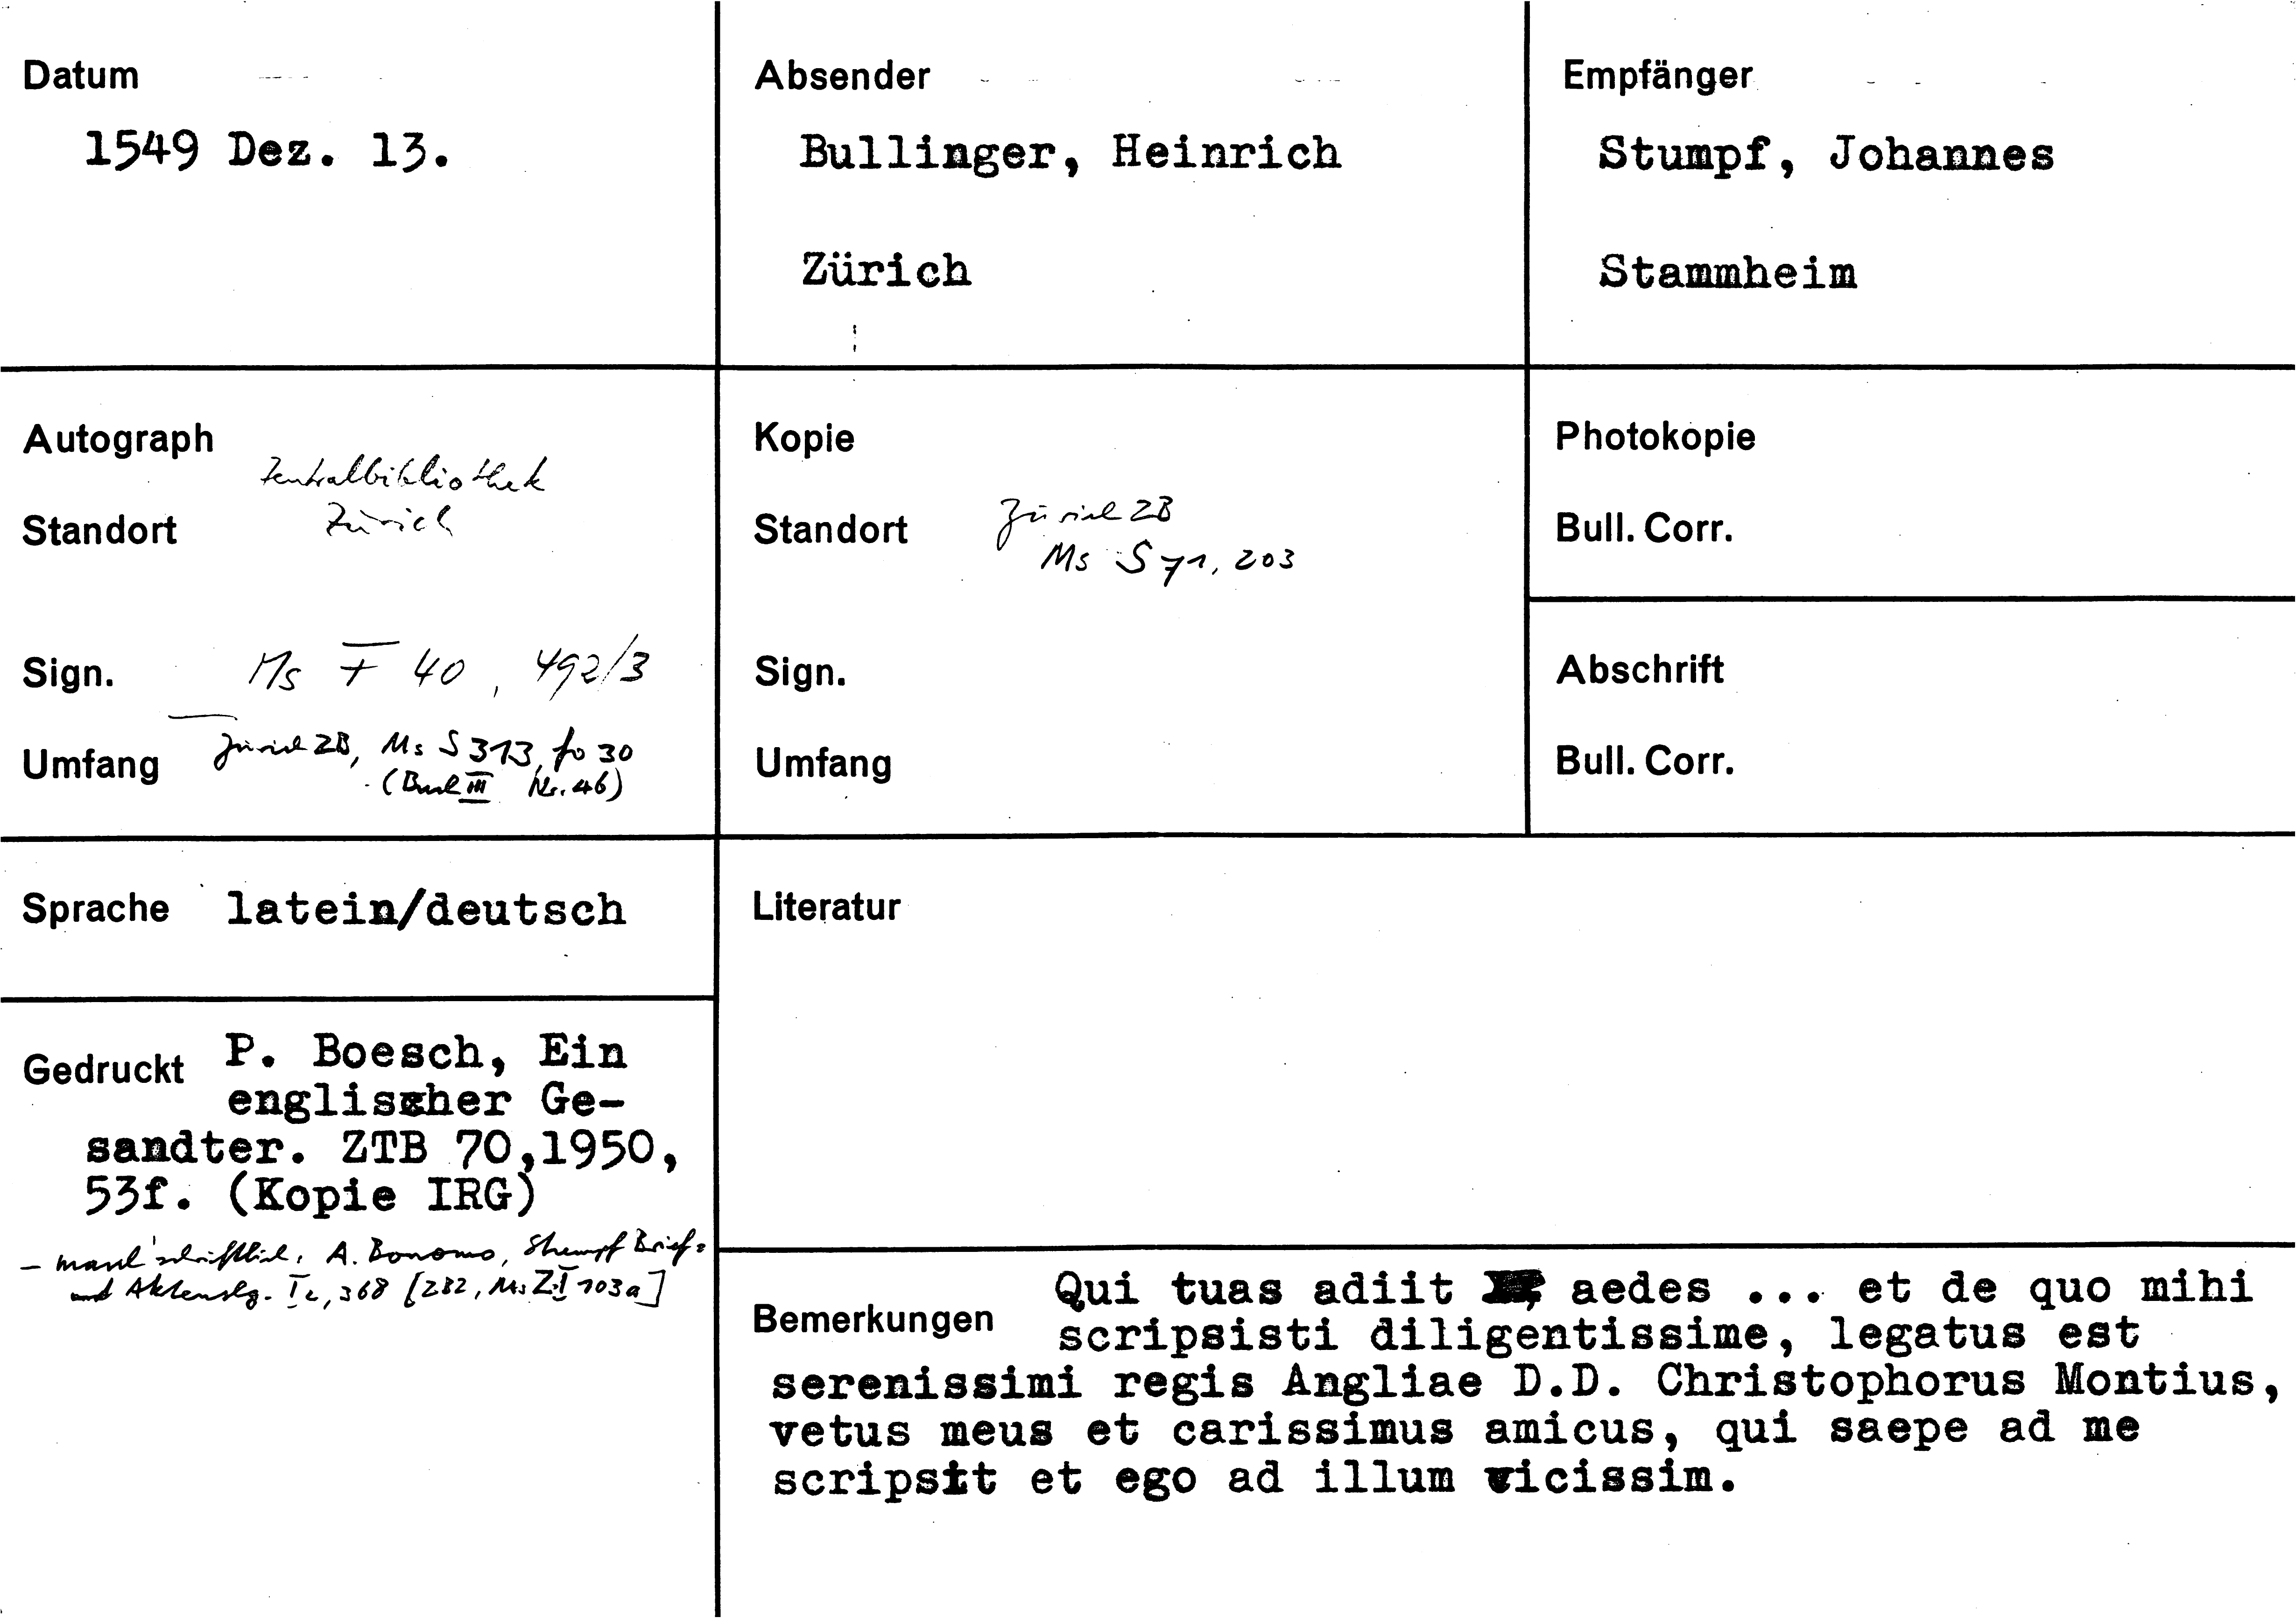 Datum
1549 Dez. 13.
Absender
Bullinger, Heinrich
Zürich
Empfänger
Stumpf, Johannes
Stammheim
Autograph
Zentralbibliothek
Standort
Zürich
Sign.
Ms F 40, 492/3
Umfang
Zürich ZB, Ms S 313, fo 30
(Bund III Nr. 46)
Kopie
Standort
Zürich ZB
Ms S 71, 203
Sign.
Umfang
Photokopie
Bull. Corr.
Abschrift
Bull. Corr.
Sprache latein/deutsch
Gedruckt P. Boesch, Ein
englischer Ge-
sandter. ZTB 70,1950,
53f. (Kopie IRG)
- masch'schriftlich: A. Bonomo, Stumpf Brief=
und Aktenslg. I2, 368 [ZB2, Ms Z I 103a]
Literatur
Bemerkungen
Qui tuas adiit aedes ... et de quo mihi
scripsisti diligentissime, legatus est
serenissimi regis Angliae D.D. Christophorus Montius,
vetus meus et carissimus amicus, qui saepe ad me
scripsit et ego ad illum vicissim.